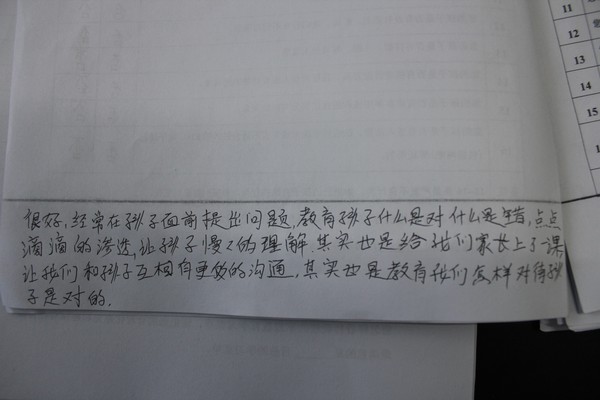 很好,经常在孩子面前提出问题,教育孩子什么是对什么是错,点点
滴滴的渗透,让孩子慢慢的理解.其实也是给我们家长上了课
让我们和孩子互相有更好的沟通,其实也是教育我们怎样对待孩
子是对的.
11
12
13
14
15